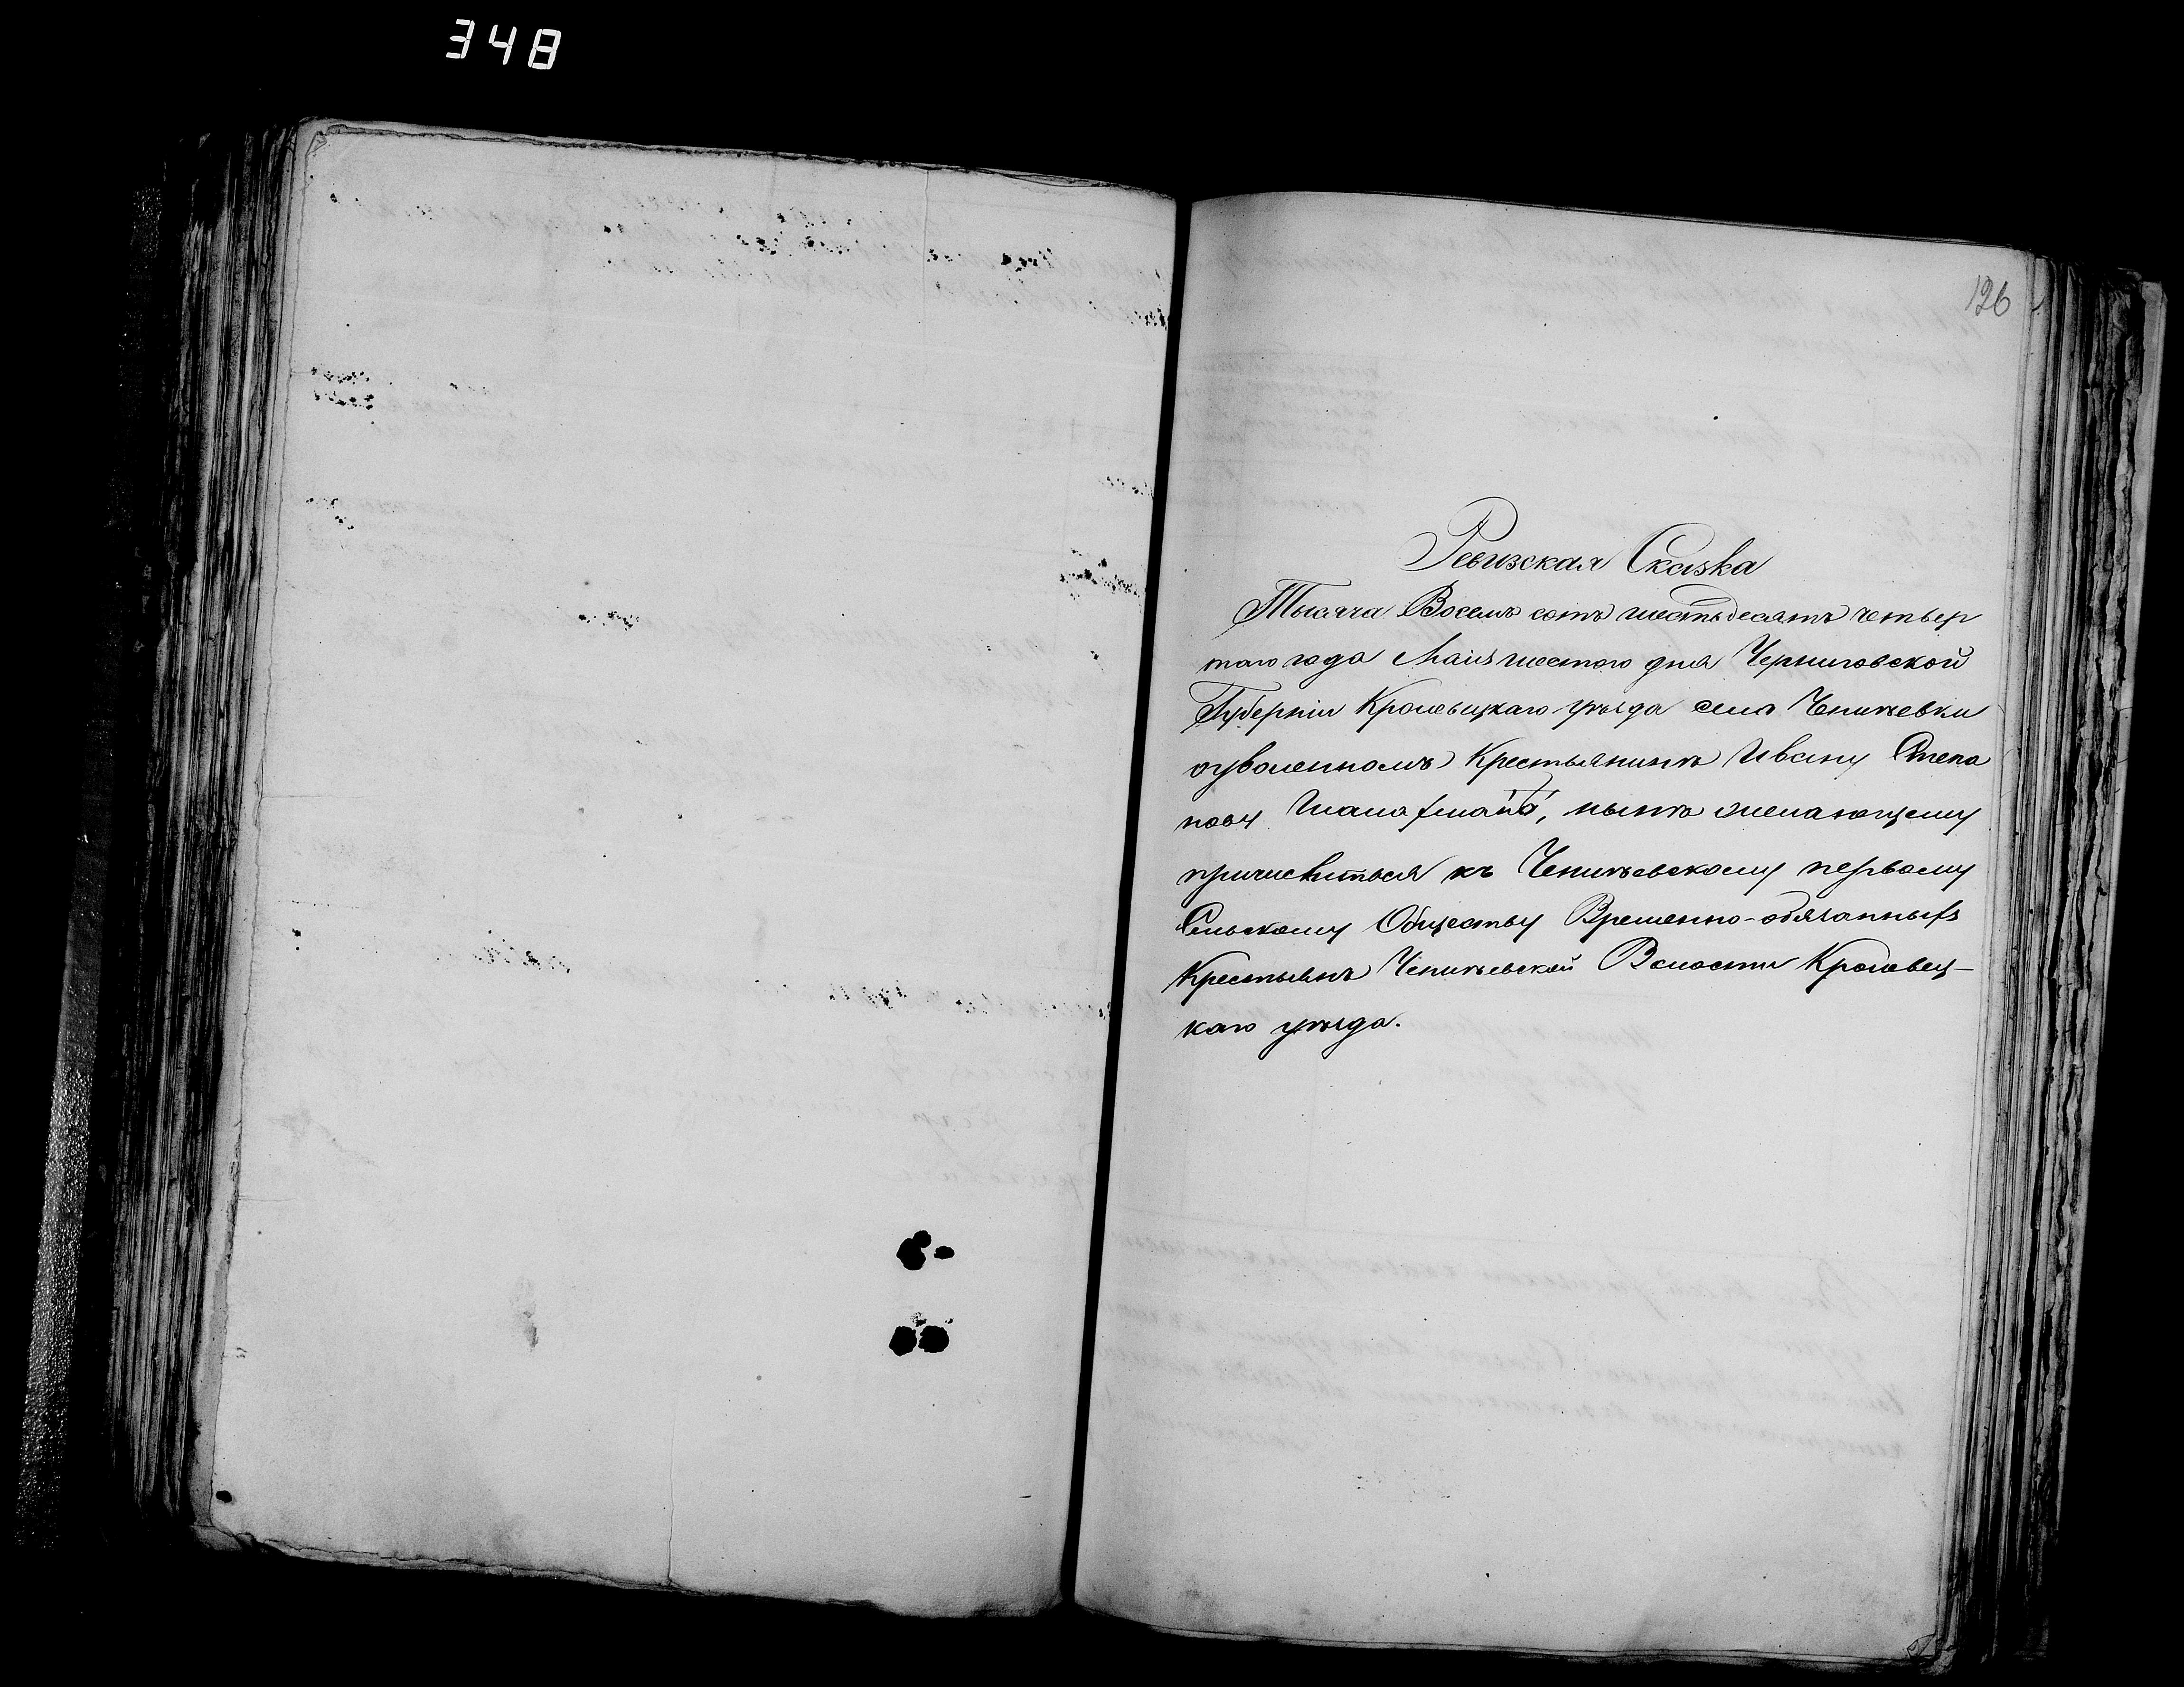 348
126
Ревизская Сказка
Тысяча Восемь сотъ шестьдесятъ четвер
таго года Маія шестого дня Черниговской
Губерніи Кролевецкаго уѣзда села Чепиževки
оуволенномъ Крестьянинѣ Ивану Степа
нову нынѣ желающему
причислиться къ Чепиѣевскому первому
Сельскому Обществу Временно-обязанныхъ
Крестьянъ Чепиѣевской Волости Кролевец-
каго уѣзда.